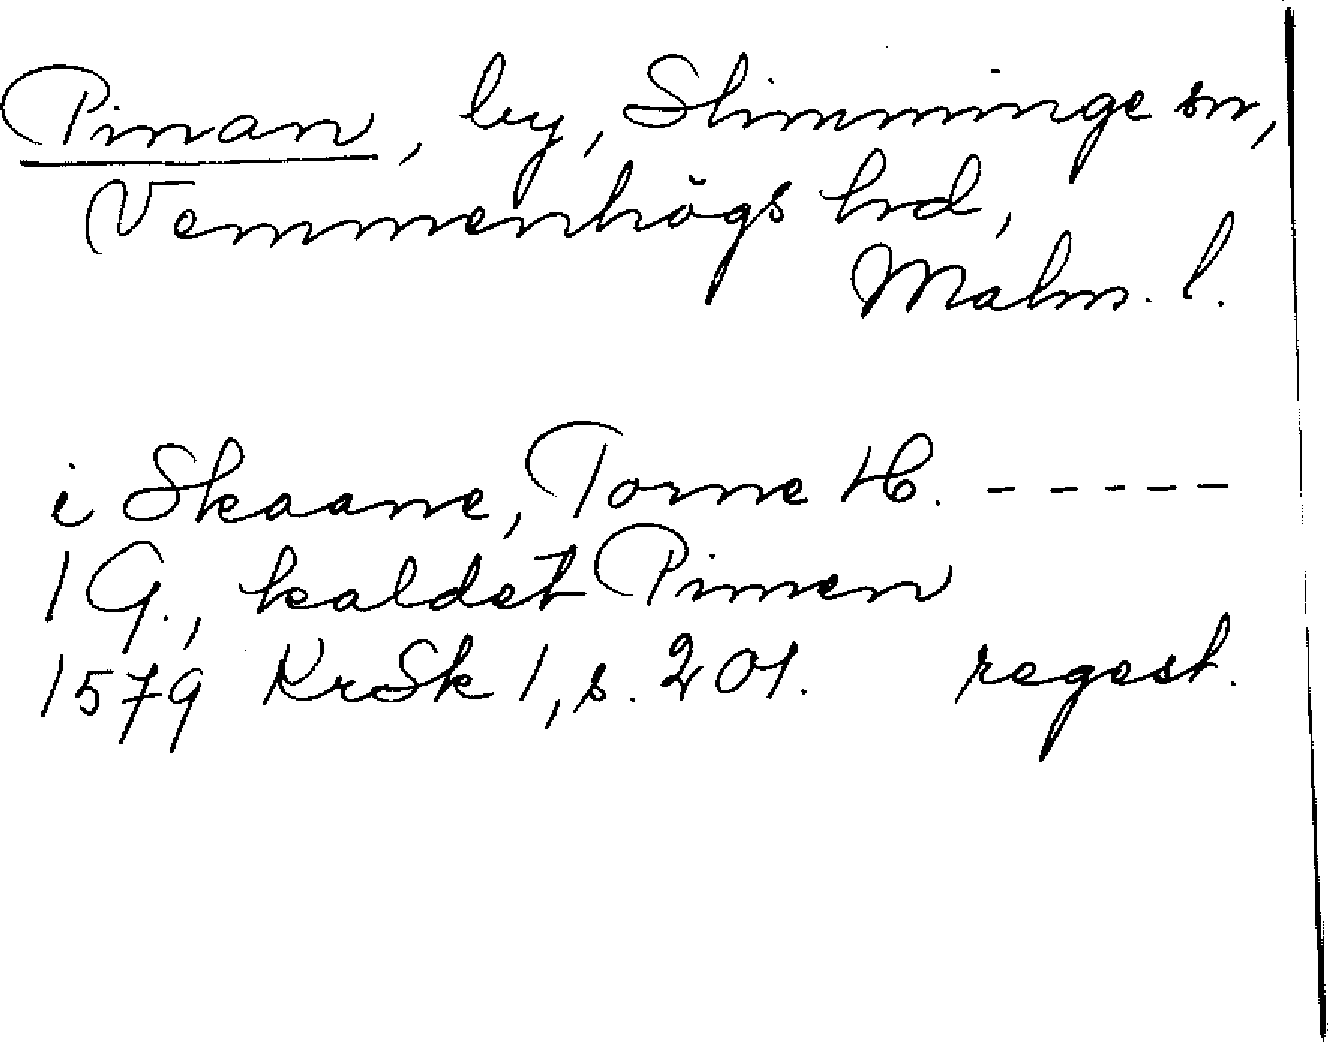 Pinan, by, Slimminge sn,
Vemmenhögs hrd,
Malm. l.
i Skaane, Torne H. -----
1 G., kaldet Pinen
1579 KrSk 1, s. 201. regest.